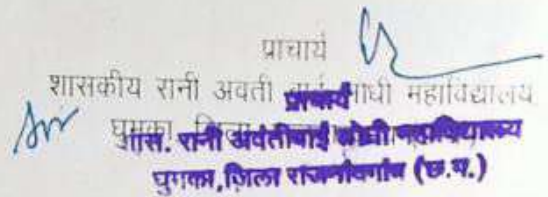 प्राचार्य
शासकीय रानी अवंती बाई लोधी महाविद्यालय
घुमका जिला
प्राचार्य
शास. रानी अवंतीबाई लोधी महाविद्यालय
घुमका, जिला राजनांदगांव (छ.ग.)